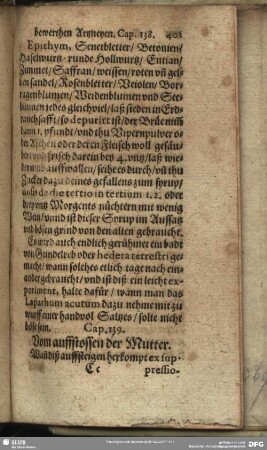 bewerthen Artzneyen. Cap. 138. 401
Epithym, Senetbletter, Betonien,
Haselwurtz, runde Hollwurtz, Entian,
Zimmet, Saffran, weissen, roten vñ gel-
ben sandel, Rosenbletter, Veiolen, Bor-
ragenblumen, Weidenblumen vnd See-
blumen jedes gleichviel, laß sieden in Erd-
rauchsafft, so depurirt ist, der Brüe nim̃
dann 1. pfundt, vnd thu Vipernpulver o-
der Aschen oder deren Fleisch woll gesäu-
bert vñ frisch darein bey 4. vntz, laß wie-
der vnd auffwallen, seihe es durch, vñ thu
Zucker dazu deines gefallens zum syrup,
de tertio in tertium 1. 2. oder
drey vntz Morgents nüchtern mit wenig
Wein, vnnd ist dieser Syrup im Aussatz
vnd bösen grind von den alten gebraucht.
Es wird auch endlich gerühmet ein badt
von Gundelreb oder hedera terrestri ge-
macht, wann solches etlich tage nach ein-
ander gebraucht, vnd ist diß ein leicht ex-
periment, halte dafür, wann man das
Lapathum acutum dazu nehme mit zu
wurff einer handvol Saltzes, solte nicht
böß sein.
Cap. 139.
Vom auffstossen der Mutter.
Wañ diß auffsteigen herkompt ex sup-
Cc pressio-
SLUB
DFG